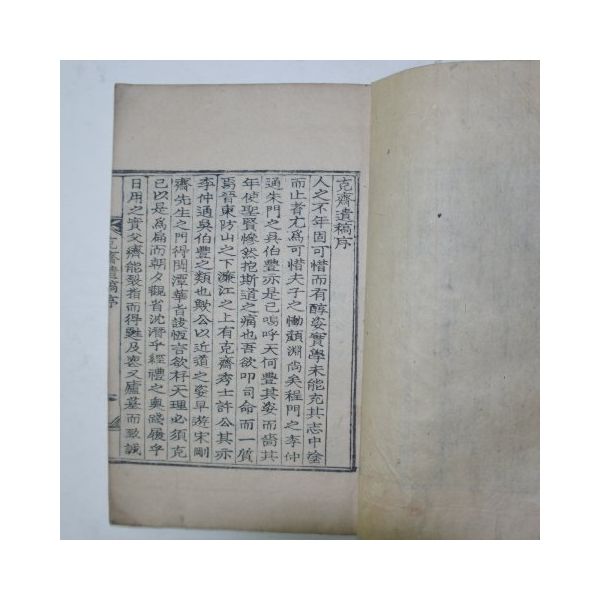 克齋遺稿序
人之不年固可惜而有醇姿實學未能充其志中塗
而止者尤爲可惜夫子之慟顔淵尚矣程門之李仲
通朱門之吳伯豐亦是已嗚呼天何豐其姿而嗇其
年使聖賢慘然抱斯道之痛也吾欲叩司命而一質
焉晉東防山之下濂江之上有克齋秀士許公其亦
李仲通吳伯豐之類也歟公以近道之姿早遊宋剛
齋先生之門得聞潭華旨訣恆言欲存天理必須克
己以是爲扁而朝夕觀省沈潛乎經禮之奧踐履乎
日用之實父癠能裂指而得甦及喪又廬墓而致誠
克齋遺稿序
一